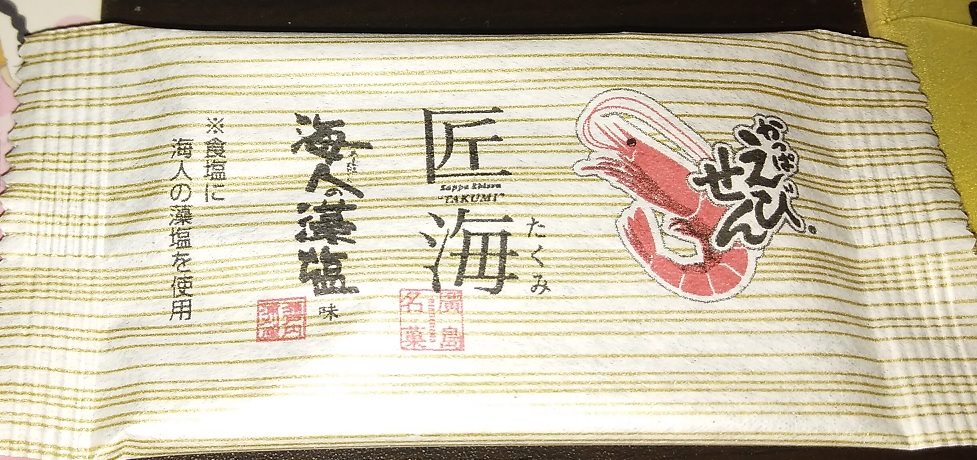 かっぱ
えび
せん
匠海
たくみ
Kappa Ebisen
"TAKUMI"
廣島
名菓
海人の藻塩
味
※食塩に
海人の藻塩を使用